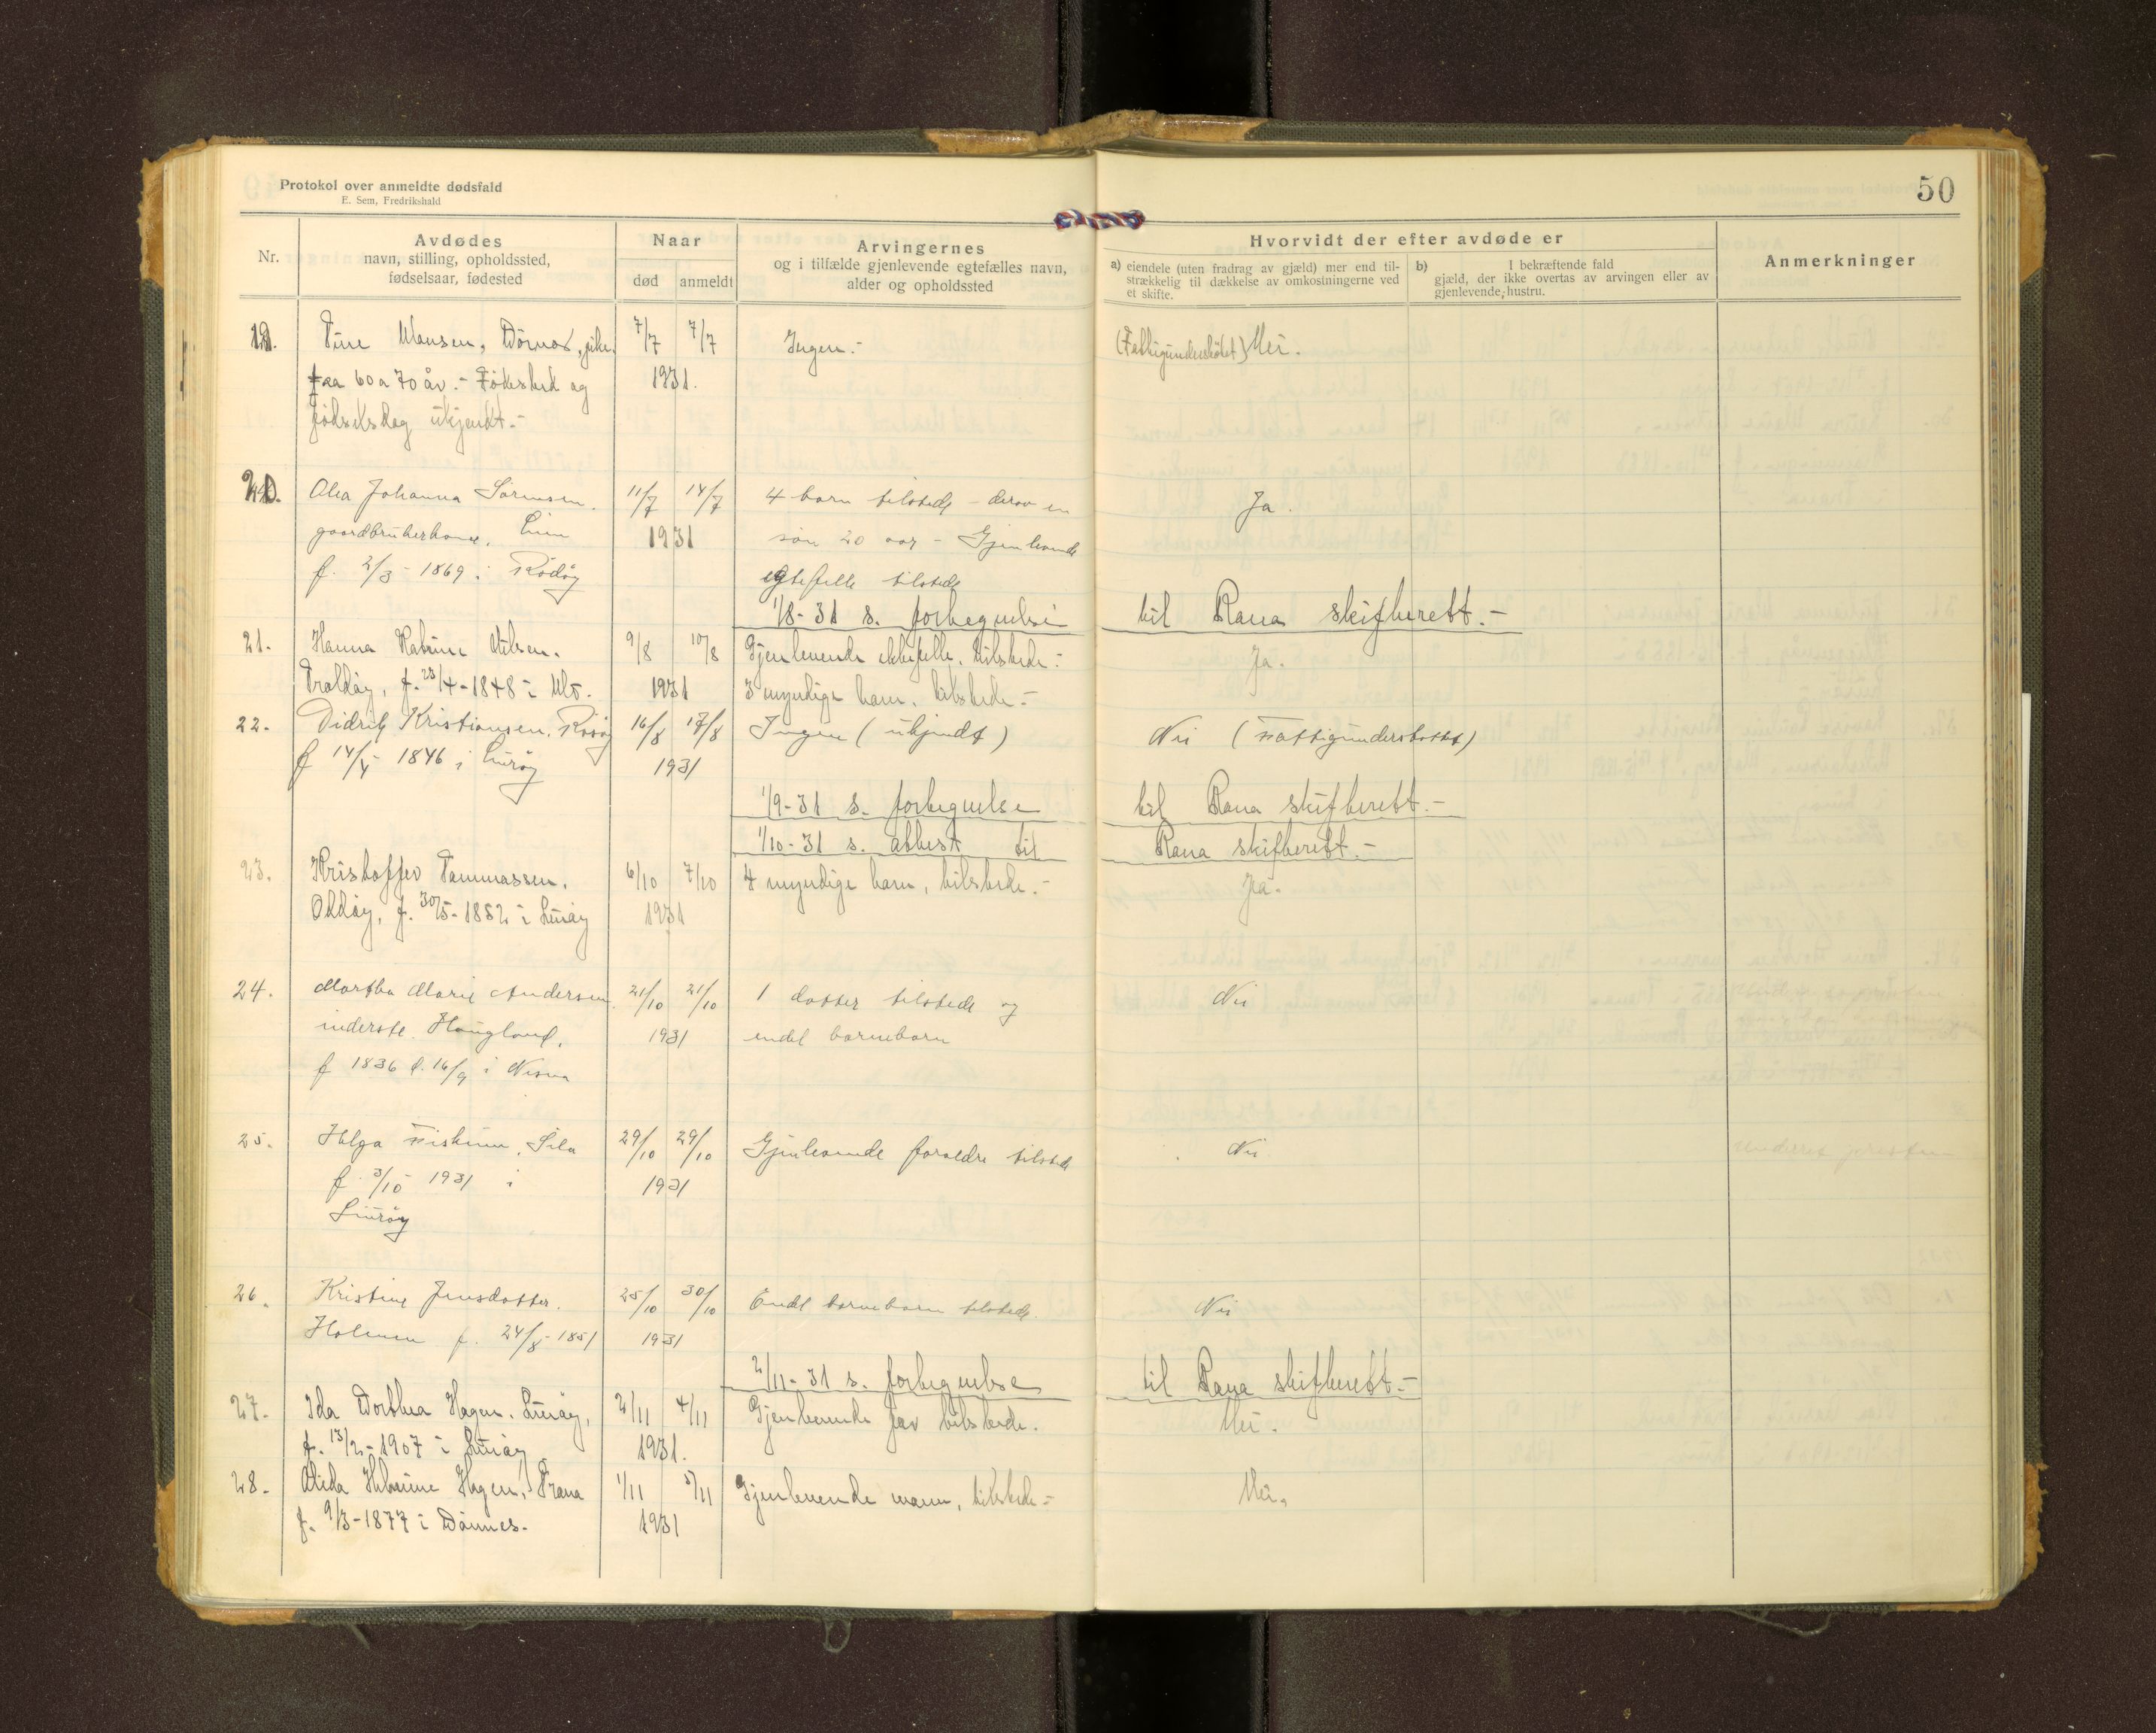 Protokol over anmeldte dødsfald
E. Sem, Fredrikshald
50
Nr.
Avdødes
navn, stilling, opholdssted,
fødselsaar, fødested
Naar
død
anmeldt
Arvingernes
og i tilfælde gjenlevende egtefælles navn,
alder og opholdssted
Hvorvidt der efter avdøde er
a) eiendele (uten fradrag av gjæld) mer end til-
strækkelig til dækkelse av omkostningerne ved
et skifte.
b) I bekræftende fald
gjæld, der ikke overtas av arvingen eller av
gjenlevende hustru.
Anmerkninger
19. Tine Hansen, pike. 7/7 7/7 Ingen.- (Fattigunderstöttet) Nei.
60 a 70 år.- Födested og 1931.
födselsdag ukjendt.-
20. Olea Johanna Sørensen. 11/7 14/7 4 barn tilstede - derav en Ja.
gaardbrukerkone, 1931 sön 20 aar - Gjenlevende
f. 2/3 - 1869 i Rödöy egtefelle tilstede
1/8-31 s. forbegnelse til Rana skifterett.-
21. Hanna Katrine Nilsen. 9/8 10/8 Gjenlevende ektefelle, tilstede.- Ja.
f. 23/4-1848 i 1931 3 myndige barn, tilstede.-
22. Didrik Kristiansen, 16/8 17/8 Ingen (ukjendt) Nei (Fattigunderstöttet)
f 14/4 - 1846 i Luröy 1931
1/9-31 s. forbegnelse til Rana skifterett.-
1/10-31 s. attest til Rana skifterett.-
23. Kristoffer Tommassen. 6/10 7/10 4 myndige barn, tilstede.- Ja.
f. 30/5-1852 i Luröy 1931
24. Martha Marie Andersen 21/10 21/10 1 datter tilstede og Nei
inderste. Haugland, 1931 endel barnebarn
f 1836 d. 16/9 i Nesna
25. Helga Fiskum, Sila 29/10 29/10 Gjenlevende foreldre tilstede Nei
f. 3/10 1931 i 1931
Luröy
26. Kristine Jensdatter. 25/10 30/10 Endel barnebarn tilstede Nei
Holmen f. 24/8-1851 1931
2/11-31 s. forbegnelse til Rana skifterett.-
27. Ida Dorthea Hagen, Luröy, 2/11 4/11 Gjenlevende far tilstede. Nei.
f. 13/2-1907 i Luröy 1931.
28. Alida Hagen, Træna 1/11 5/11 Gjenlevende mann, tilstede.- Nei.
f. 9/3-1877 i Dönnes. 1931